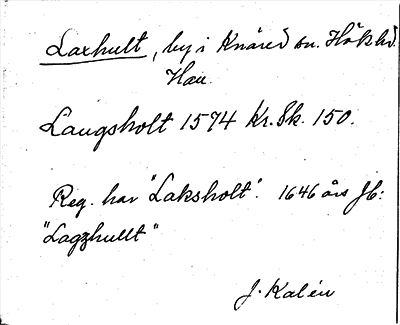 Laxhult, by i Knäred sn. Höks hd.
Hall.
Laugsholt 1574 Kr. Sk. 150.
Reg. har "Laksholt". 1646 års Jb:
"Lagzhullt"
J. Kalén